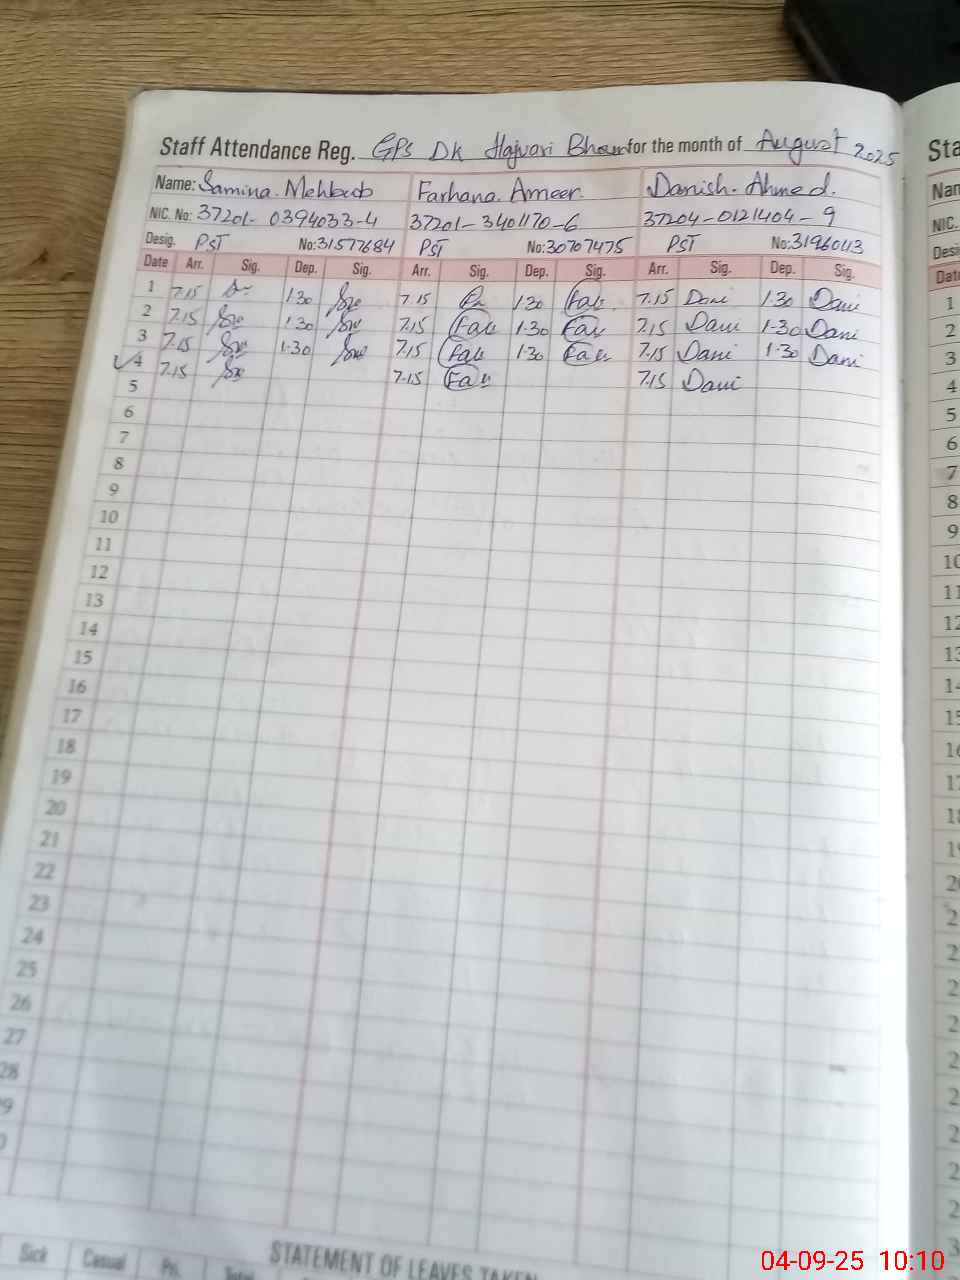 Staff Attendance Reg. GPS DK Hajvari Bhoun for the month of August 2025
Name: Samina Mehboob Farhana Ameer Danish Ahmed
NIC. No: 37201-0394033-4 37201-3401170-6 37204-0121404-9
Desig. PST No: 31577684 PST No: 30707475 PST No: 31960113
Date Arr. Sig. Dep. Sig. Arr. Sig. Dep. Sig. Arr. Sig. Dep. Sig.
1 7.15 1.30 7.15 1.30 Fab 7.15 Dani 1.30 Dani
2 7.15 1.30 7.15 Fab 1.30 Fab 7.15 Dani 1.30 Dani
3 7.15 1.30 7.15 Fab 1.30 Fab 7.15 Dani 1.30 Dani
4 7.15 7.15 Fab 7.15 Dani
5
6
7
8
9
10
11
12
13
14
15
16
17
18
19
20
21
22
23
24
25
26
27
28
STATEMENT OF LEAVES TAKEN
Sick Casual Pri. Total
Sta
Nam
NIC.
Desi
Date
1
2
3
4
5
6
7
8
9
10
11
12
13
14
04-09-25 10:10